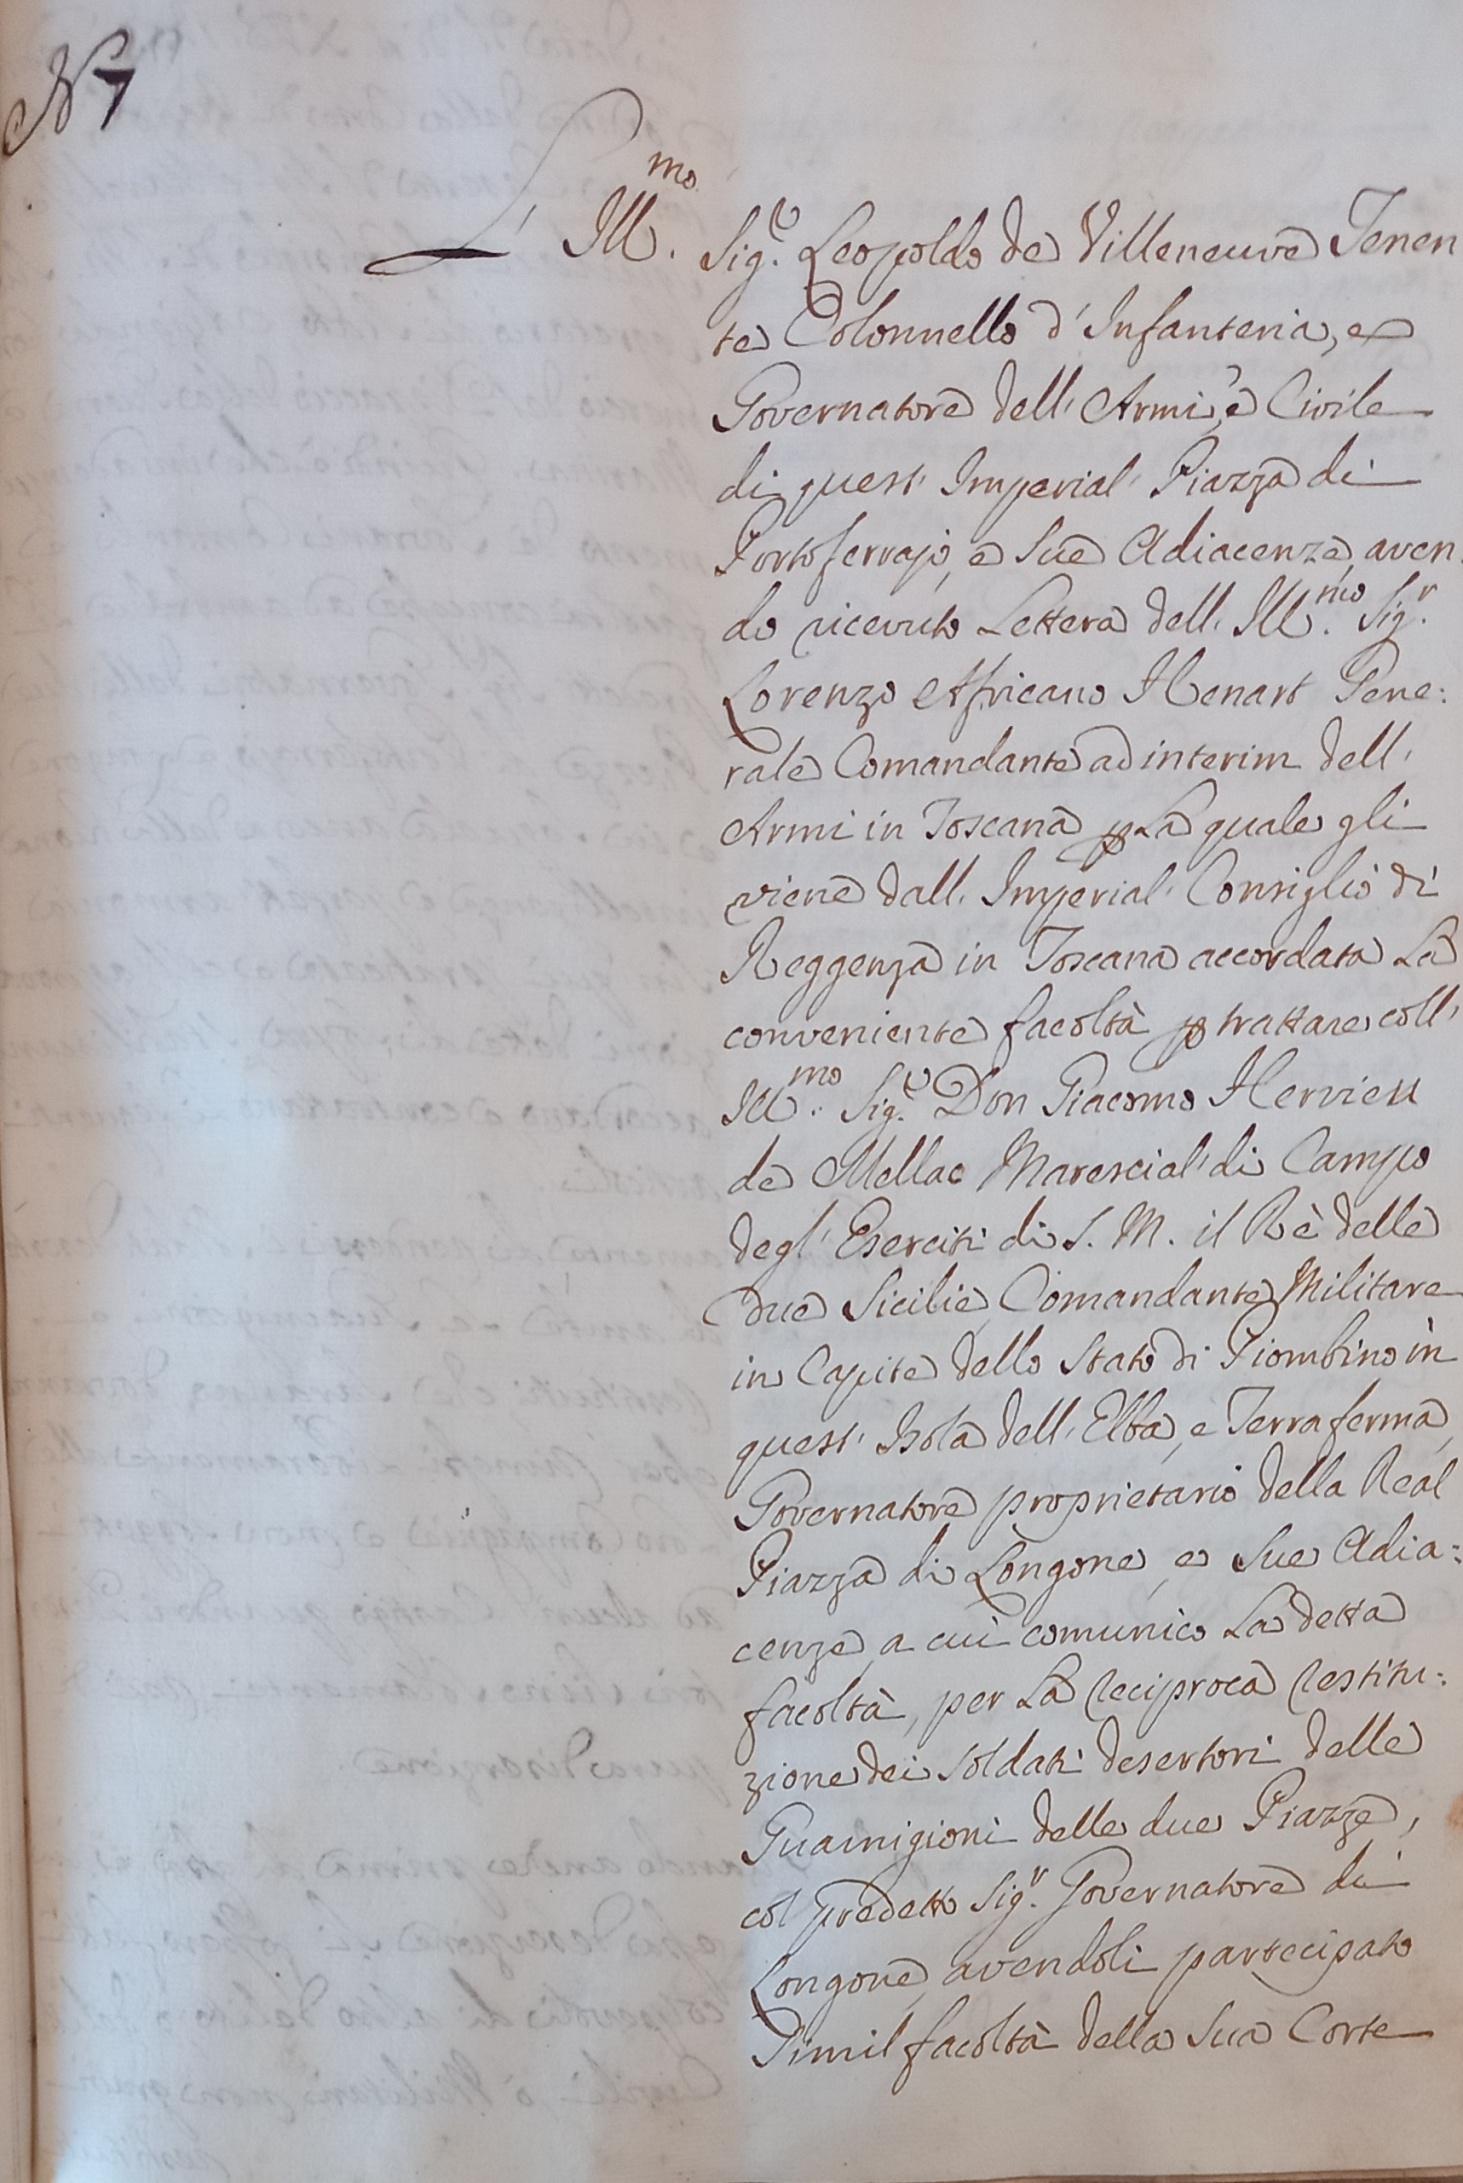 N 7
L' Ill.mo Sig.r Leopoldo de Villeneuve Tenen
te Colonnello d'Infanteria, e
Governatore dell'Armi, e Civile
di quest'Imperial'Piazza di
Portoferrajo, e Sue Adiacenze, aven
do ricevuto Lettera dell'Ill.mo Sig.r
Lorenzo Africano Henart Gene:
rale Comandante ad interim dell'
Armi in Toscana p La quale gli
viene dall'Imperial'Consiglio di
Reggenza in Toscana accordata La
conveniente facoltà p trattare coll'
Ill.mo Sig.r Don Giacomo Hervieu
de Mellac Marescial'di Campo
degl'Eserciti di S. M. il Rè delle
due Sicilie, Comandante Militare
in Capite dello Stato di Piombino in
quest'Isola dell'Elba, e Terraferma,
Governatore proprietario della Real
Piazza di Longone, e Sue Adia:
cenze, a cui comunico La detta
facoltà, per La reciproca restitu:
zione dei Soldati desertori delle
Guarnigioni delle due Piazze,
col predetto Sig.r Governatore di
Longone, avendoli partecipato
Simil facoltà della Sua Corte